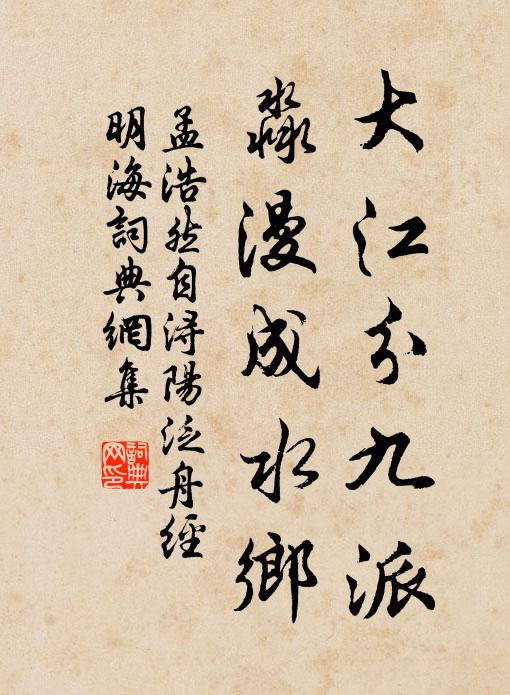 大江分九派
淼漫成水鄉
孟浩然自潯陽泛舟經
明海詞典網集
詞典網印